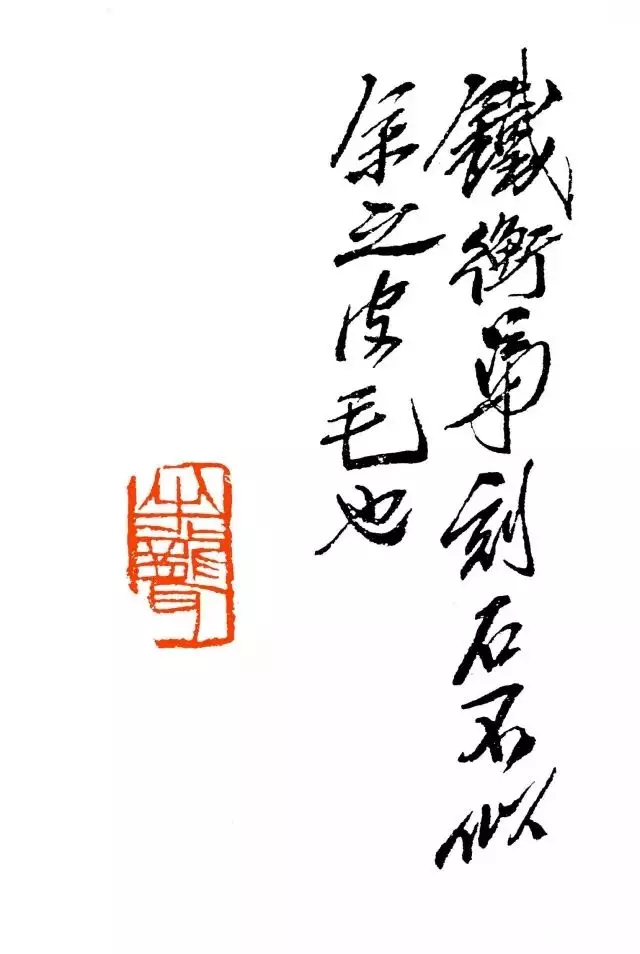 鐵衡弟刻石不似
余之皮毛也